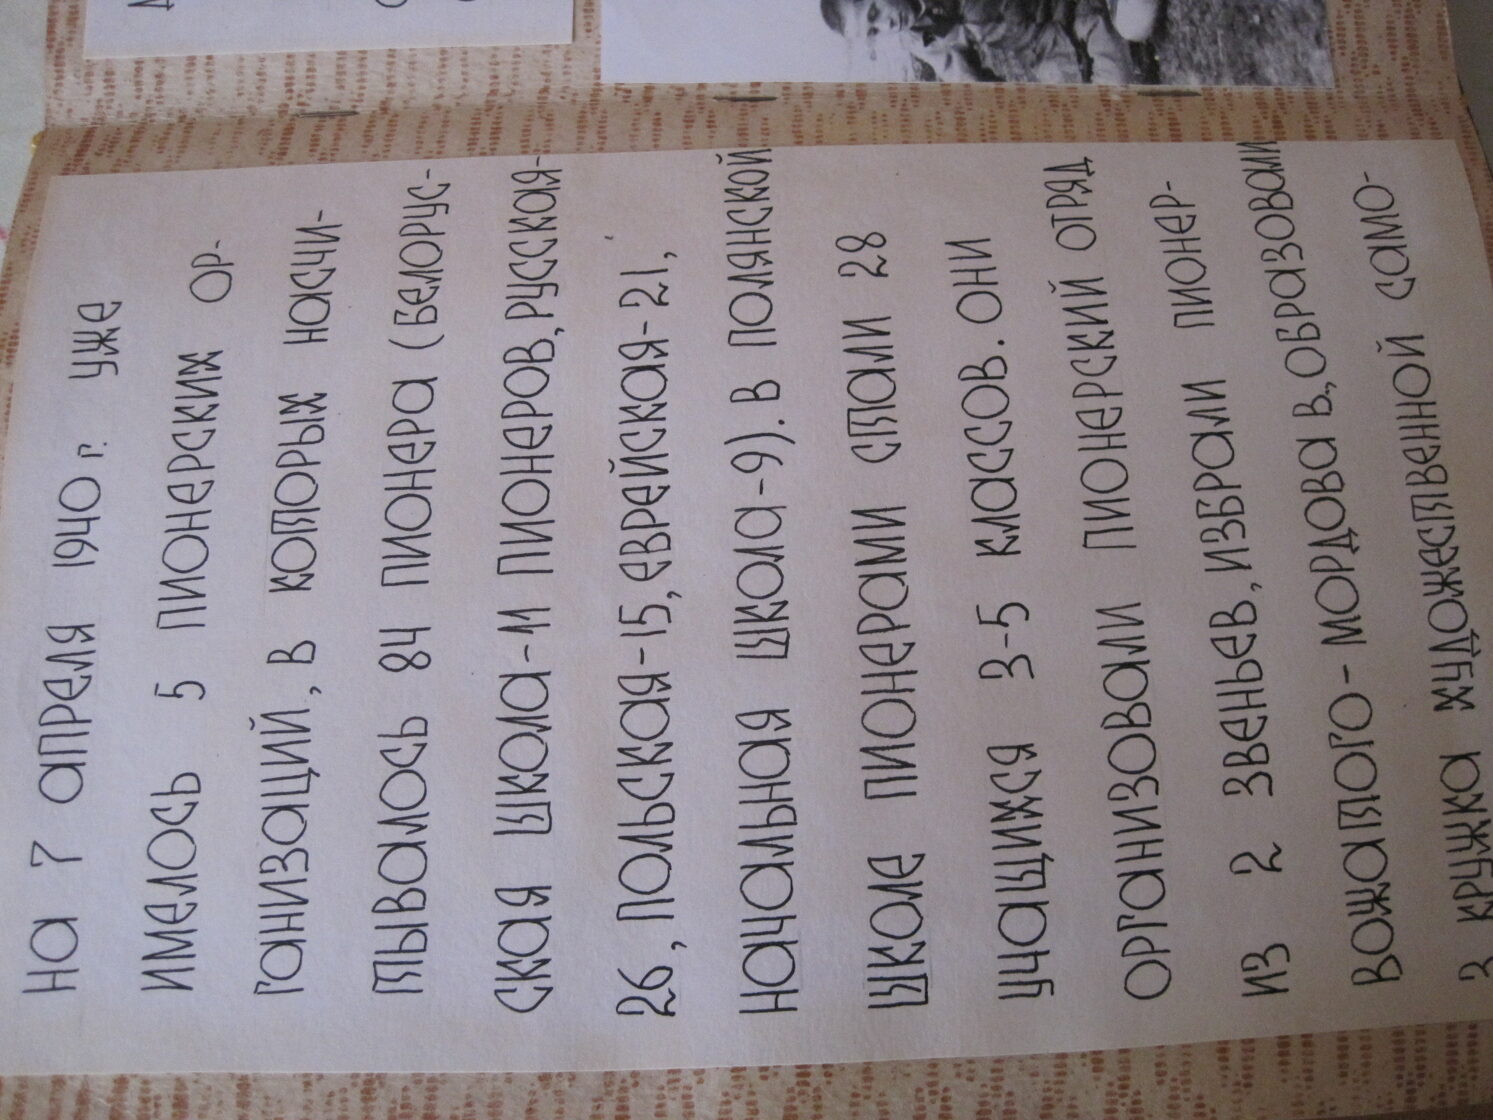 На 7 апреля 1940 г. уже
имелось 5 пионерских ор-
ганизаций, в которых насчи-
тывалось 84 пионера (белорус-
ская школа-11 пионеров, русская-
26, польская-15, еврейская-21,
начальная школа-9). В Полянской
школе пионерами стали 28
учащихся 3-5 классов. Они
организовали пионерский отряд
из 2 звеньев, избрали пионер-
вожатого - Мордова В., образовали
3 кружка художественной само-